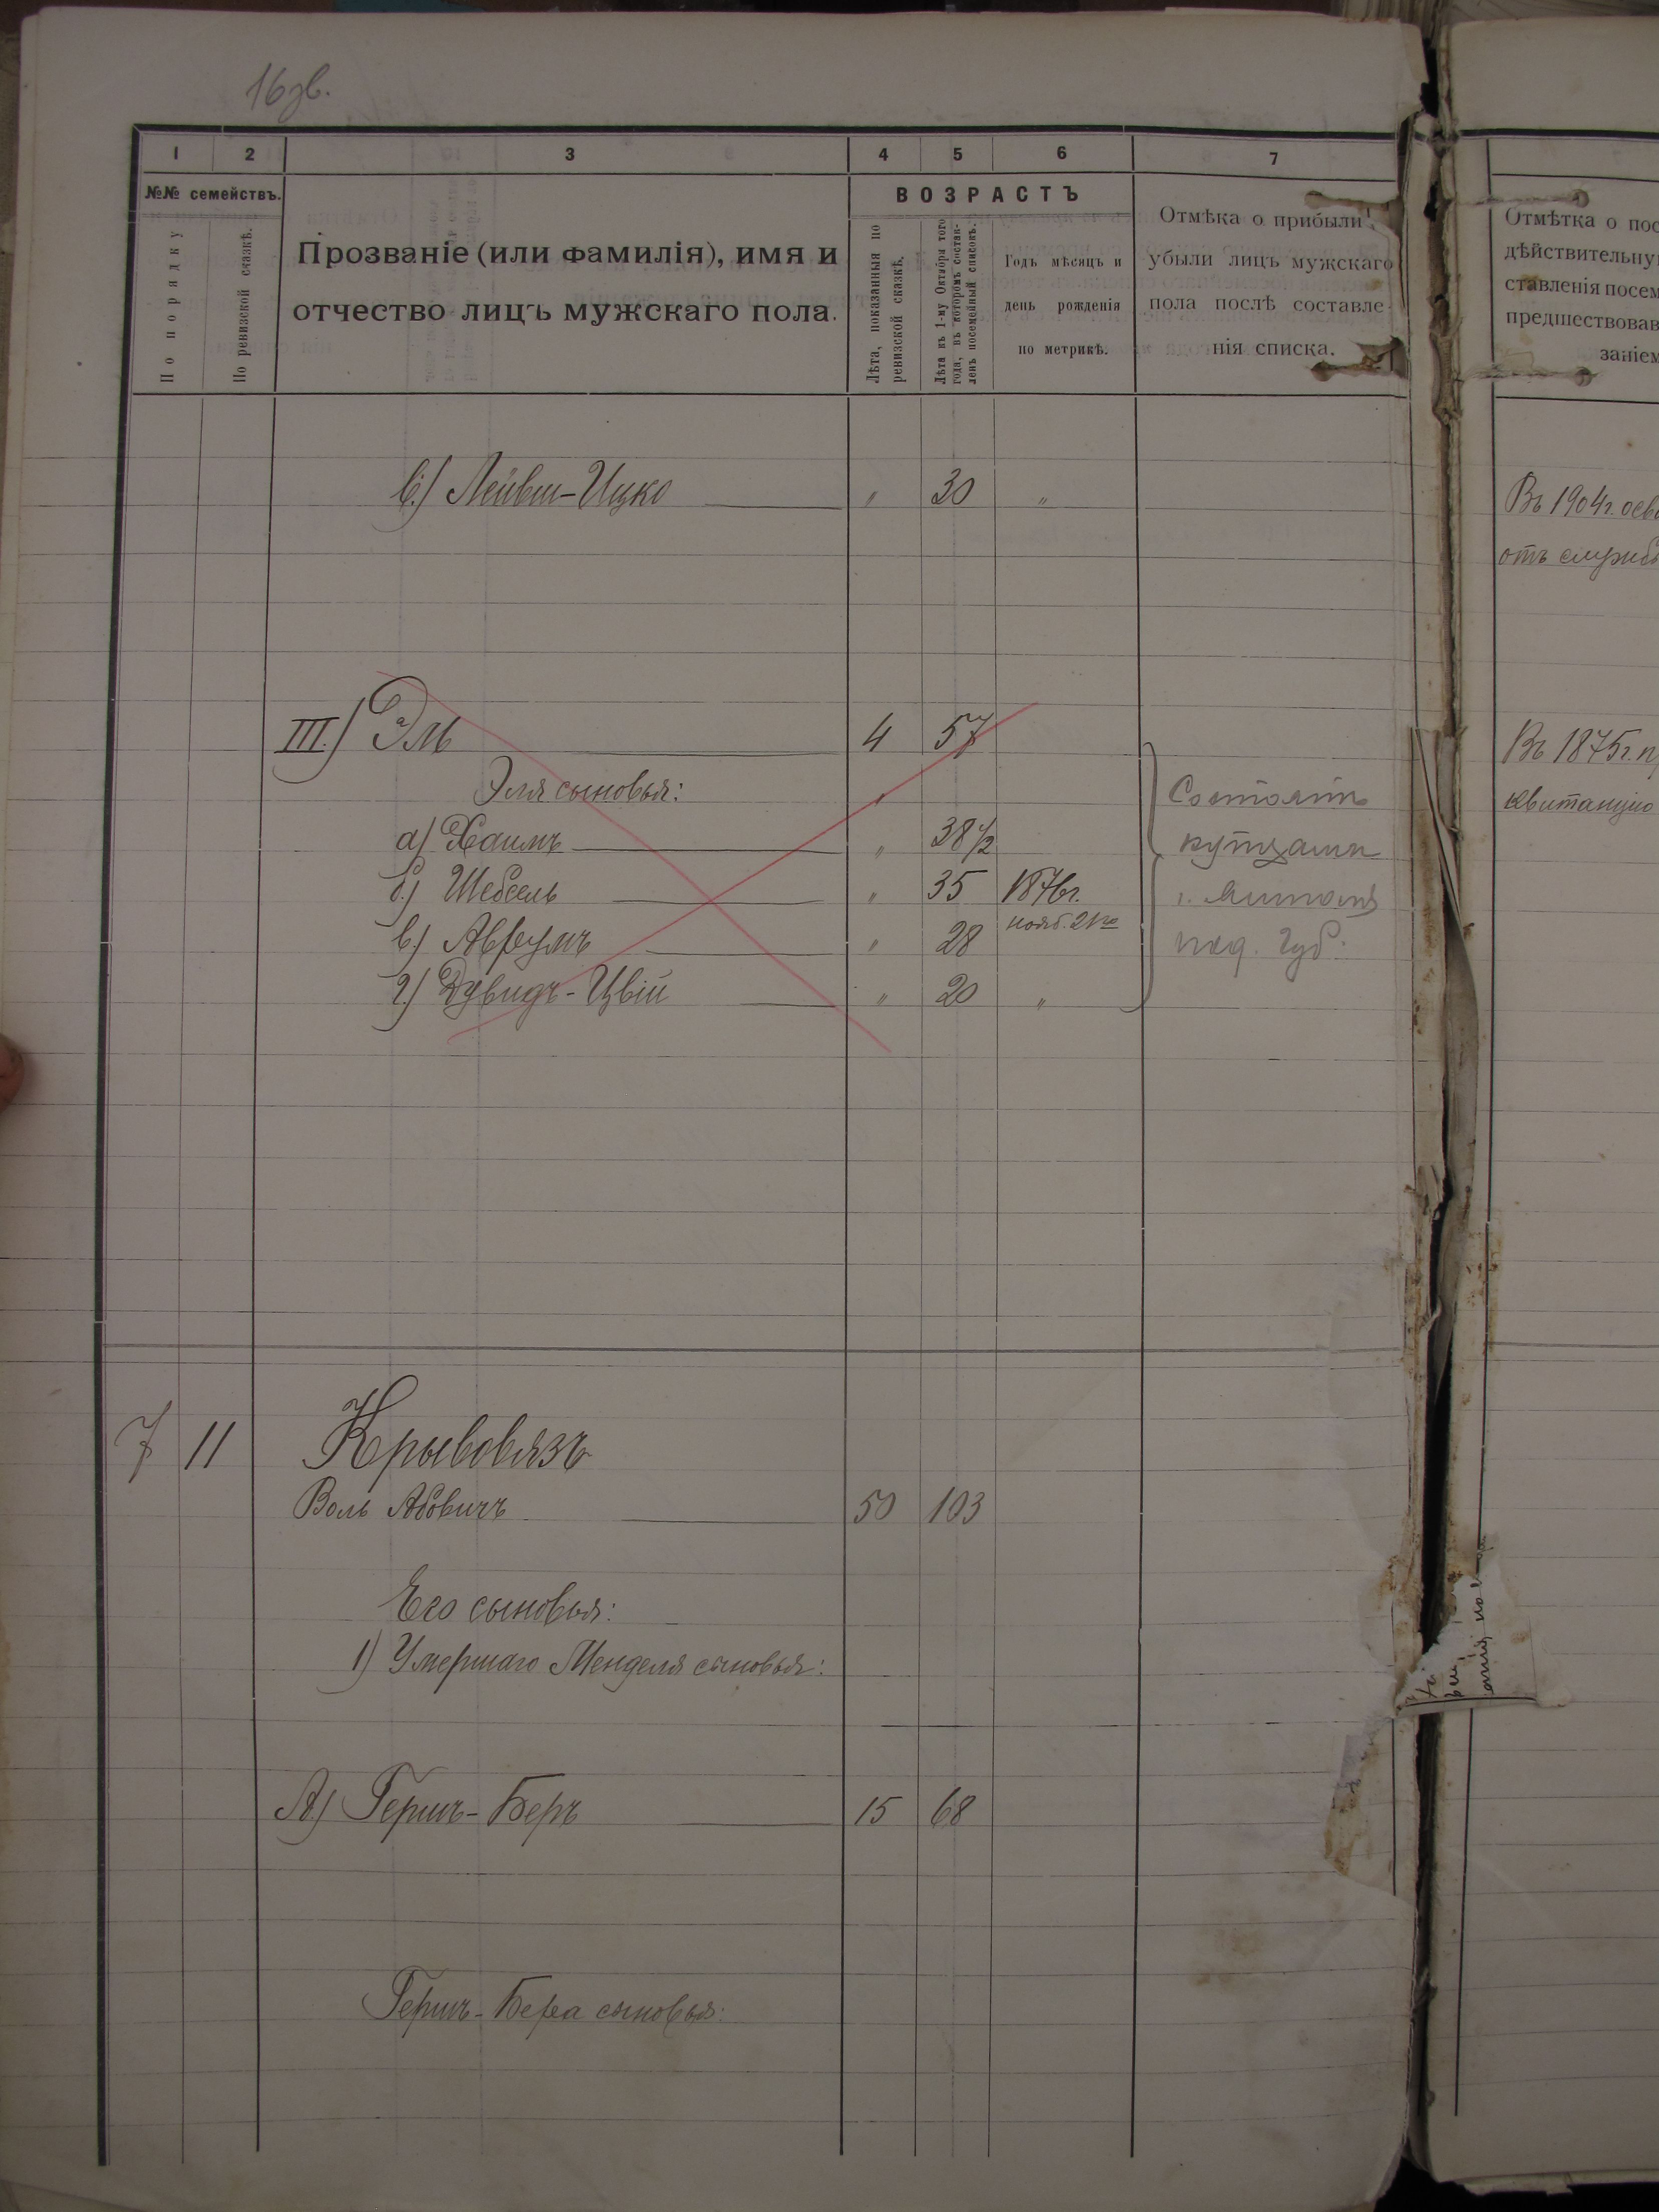 16 зв.
1 2 3 4 5 6 7
№№ семействъ.
По порядку
По ревизской сказкѣ.
Прозваніе (или фамилія), имя и
отчество лицъ мужскаго пола.
ВОЗРАСТЪ
Лѣта, показанныя по
ревизской сказкѣ.
Лѣта къ 1-му Октября того
года, въ которомъ состав-
ленъ посемейный списокъ.
Годъ мѣсяцъ и
день рожденія
по метрикѣ.
Отмѣка о прибыли
убыли лицъ мужскаго
пола послѣ составле-
нія списка.
в.) Лейвиш-Ицко " 30 "
III.) Эль 4 57
Эля сыновья:
а) Хаимъ " 38 1/2
б.) Шебсель " 35 1876г.
нояб. 21го
в.) Аврумъ " 28
г.) Дувидъ-Цвій " 20 "
Состоятъ
купцами
под. губ.
7 11 Крывовязъ
Воль Абовичъ 50 103
Его сыновья:
1) Умершаго Менделя сыновья:
А.) Гершъ-Беръ 15 68
Гершъ-Бера сыновья:
Отмѣтка о пос
дѣйствительну
ставленія посем
предшествовав
заніем
Въ 1904г. осво
отъ службы
Въ 1875г. п
квитанцію